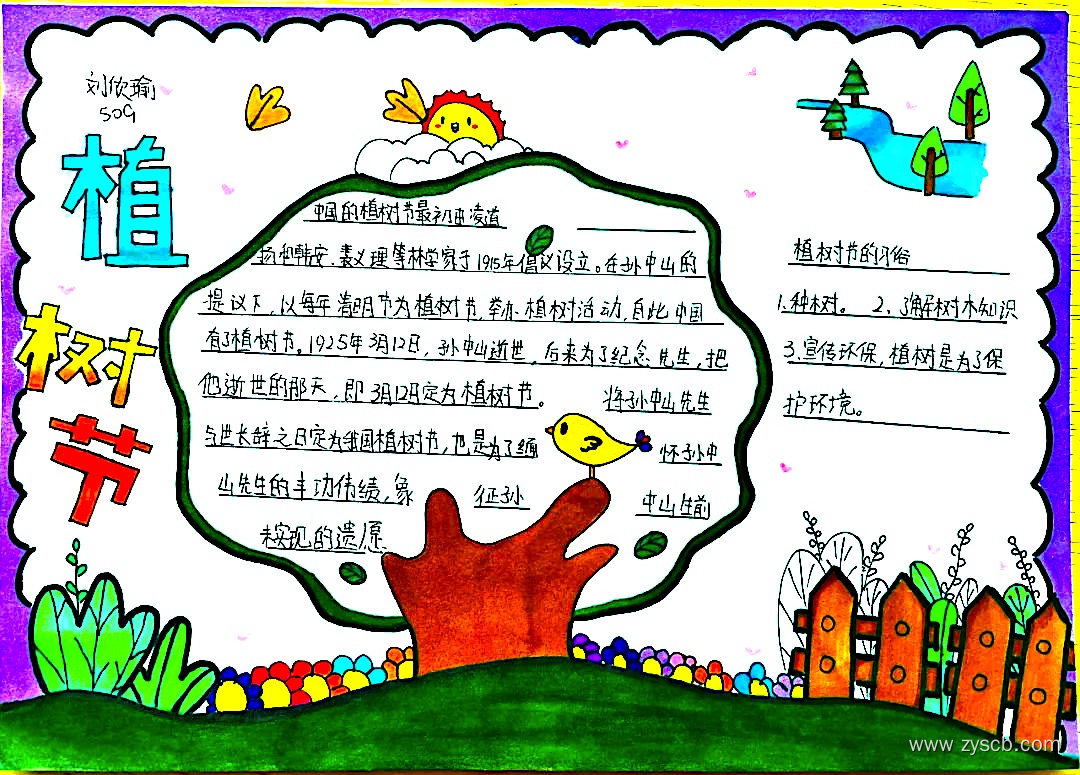 刘欣瑜
509
植
树
节
中国的植树节最初由凌道
扬和韩安、裴义理等林学家于1915年倡议设立。在孙中山的
提议下,以每年清明节为植树节,举办植树活动,自此中国
有了植树节。1925年3月12日,孙中山逝世,后来为了纪念先生,把
他逝世的那天,即3月12日定为植树节。 将孙中山先生
与世长辞之日定为我国植树节,也是为了缅 怀孙中
山先生的丰功伟绩,象 征孙 中山生前
未实现的遗愿
植树节的习俗
1.种树。 2、了解树木知识
3.宣传环保,植树是为了保
护环境。
www.zyscb.com